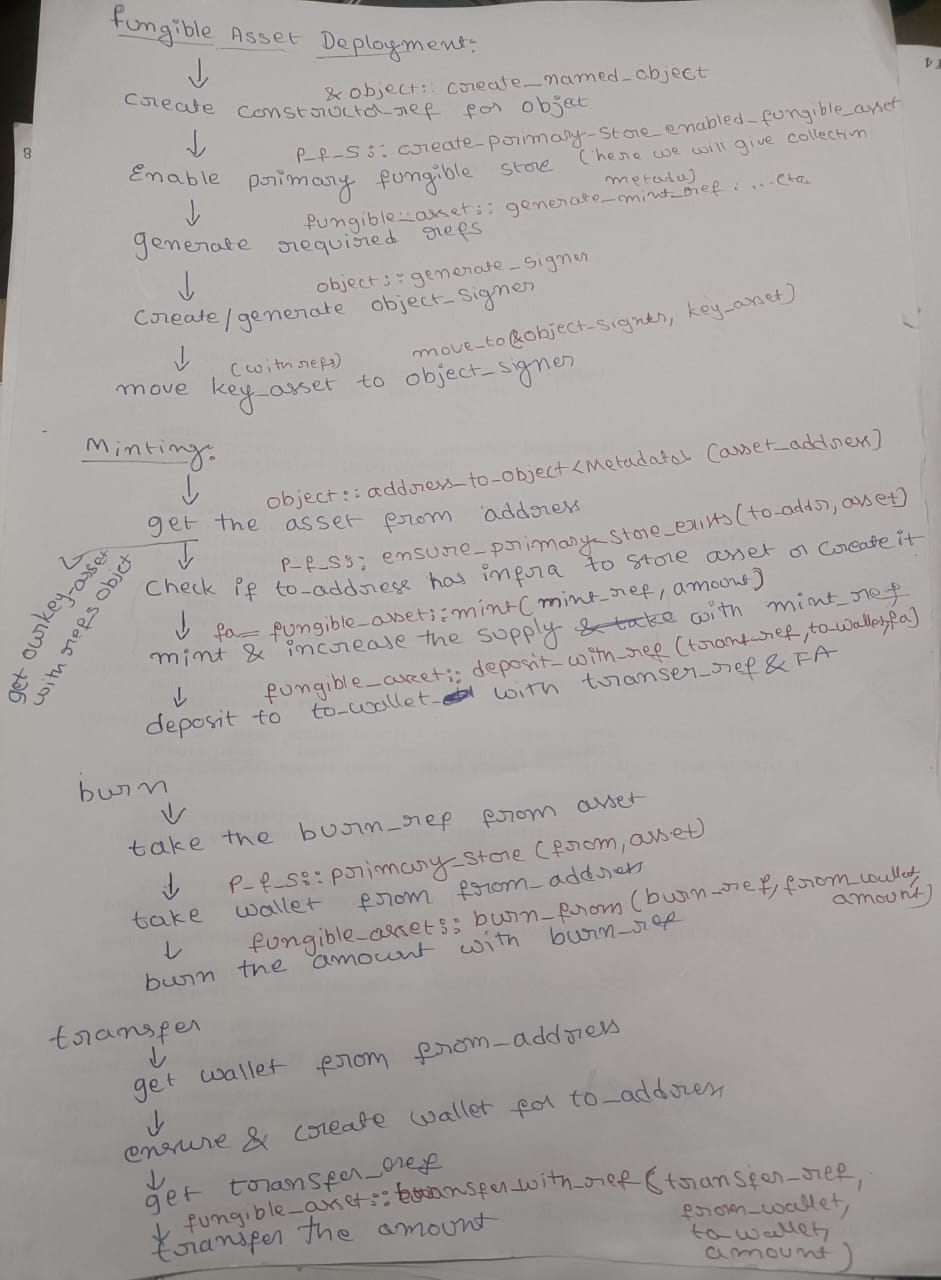 fungible Asset Deployment:
↓
& object:: create_named_object
create constructor_ref for object
↓
P_f_S:: create_primary_store_enabled_fungible_asset
Enable primary fungible store (here we will give collection
metada)
↓
fungible_asset:: generate_mint_ref. ...etc
generate required refs
↓
object:: generate_signer
Create/generate object_signer
↓
(with refs) move_to(&object_signer, key_asset)
move key_asset to object_signer
Minting:
↓
object:: address_to_object<Metadata> (asset_address)
get the asset from address
↓
get our key-asset
with refs object
P_f_S:: ensure_primary_store_exists(to_addr, asset)
Check if to_address has infra to store asset or create it
↓
fa = fungible_asset::mint(mint_ref, amount)
mint & increase the supply & take with mint_ref
↓
fungible_asset:: deposit_with_ref (trans_ref, to_wallet, fa)
deposit to to_wallet with transer_ref & FA
burn
↓
take the burn_ref from asset
↓
P_f_S:: primary_store (from, asset)
take wallet from from_address
↓
fungible_asset:: burn_from (burn_ref, from_wallet,
amount)
burn the amount with burn_ref
transfer
↓
get wallet from from_address
↓
ensure & create wallet for to_address
↓
get transfer_ref
↓
fungible_asset:: transfer_with_ref (transfer_ref,
from_wallet,
to wallet,
amount)
transfer the amount
8